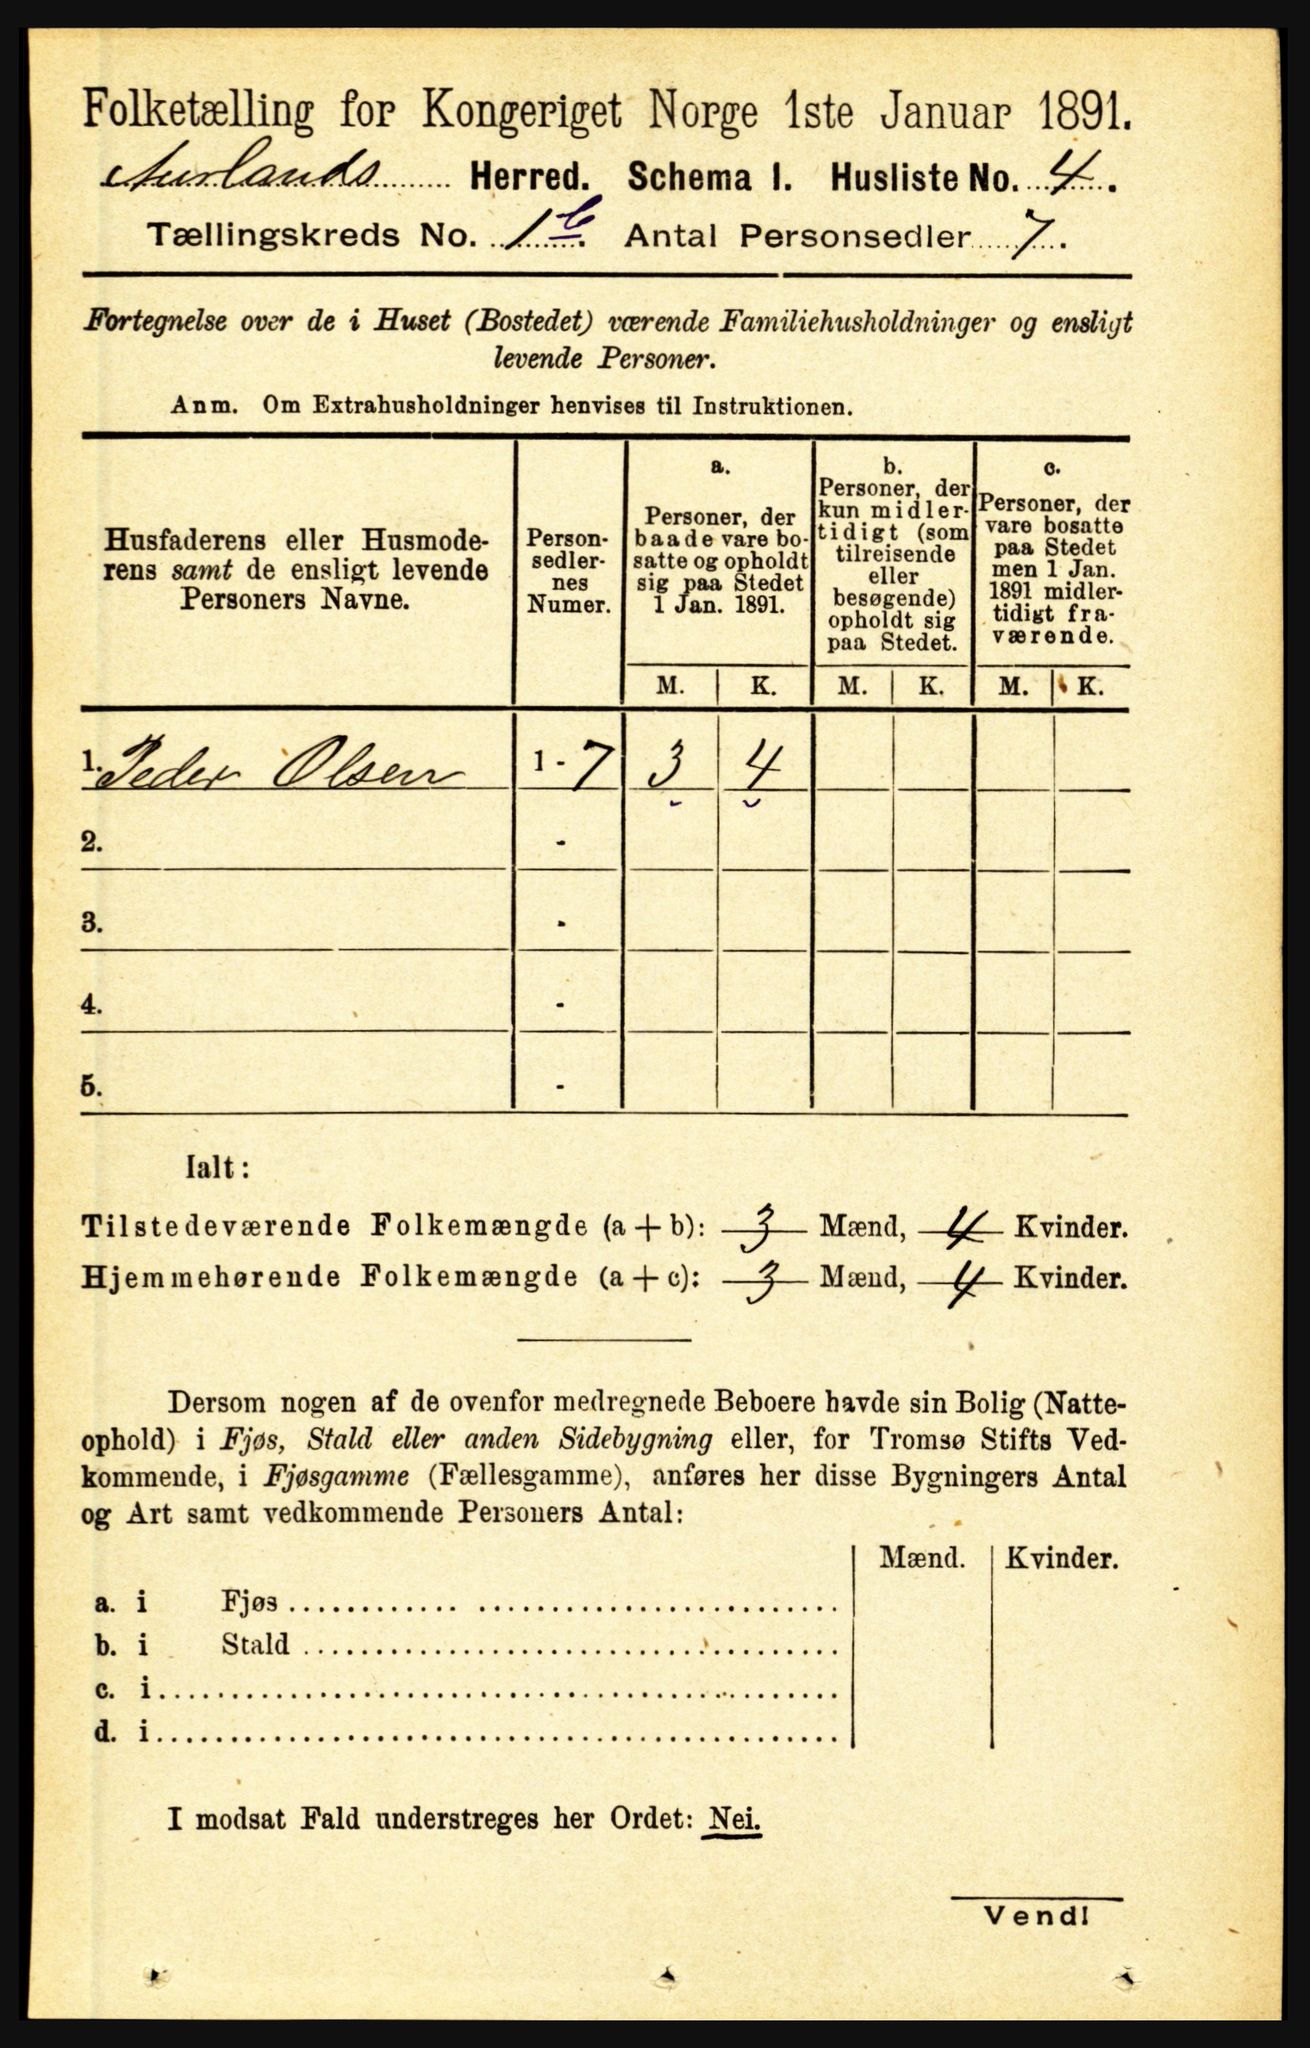 Folketælling for Kongeriget Norge 1ste Januar 1891.
Aurlands Herred. Schema I. Husliste No. 4.
Tællingskreds No. 1 b. Antal Personsedler 7.
Fortegnelse over de i Huset (Bostedet) værende Familiehusholdninger og ensligt
levende Personer.
Anm. Om Extrahusholdninger henvises til Instruktionen.
Husfaderens eller Husmode-
rens samt de ensligt levende
Personers Navne.
Person-
sedler-
nes
Numer.
a.
Personer, der
baade vare bo-
satte og opholdt
sig paa Stedet
1 Jan. 1891.
b.
Personer, der
kun midler-
tidigt (som
tilreisende
eller
besøgende)
opholdt sig
paa Stedet.
c.
Personer, der
vare bosatte
paa Stedet
men 1 Jan.
1891 midler-
tidigt fra-
værende.
M. K. M. K. M. K.
1. Peder Olsen 1 - 7 3 4
2. -
3. -
4. -
5. -
Ialt:
Tilstedeværende Folkemængde (a + b): 3 Mænd, 4 Kvinder.
Hjemmehørende Folkemængde (a + c): 3 Mænd, 4 Kvinder.
Dersom nogen af de ovenfor medregnede Beboere havde sin Bolig (Natte-
ophold) i Fjøs, Stald eller anden Sidebygning eller, for Tromsø Stifts Ved-
kommende, i Fjøsgamme (Fællesgamme), anføres her disse Bygningers Antal
og Art samt vedkommende Personers Antal:
Mænd. Kvinder.
a. i Fjøs
b. i Stald
c. i
d. i
I modsat Fald understreges her Ordet: Nei.
Vend!